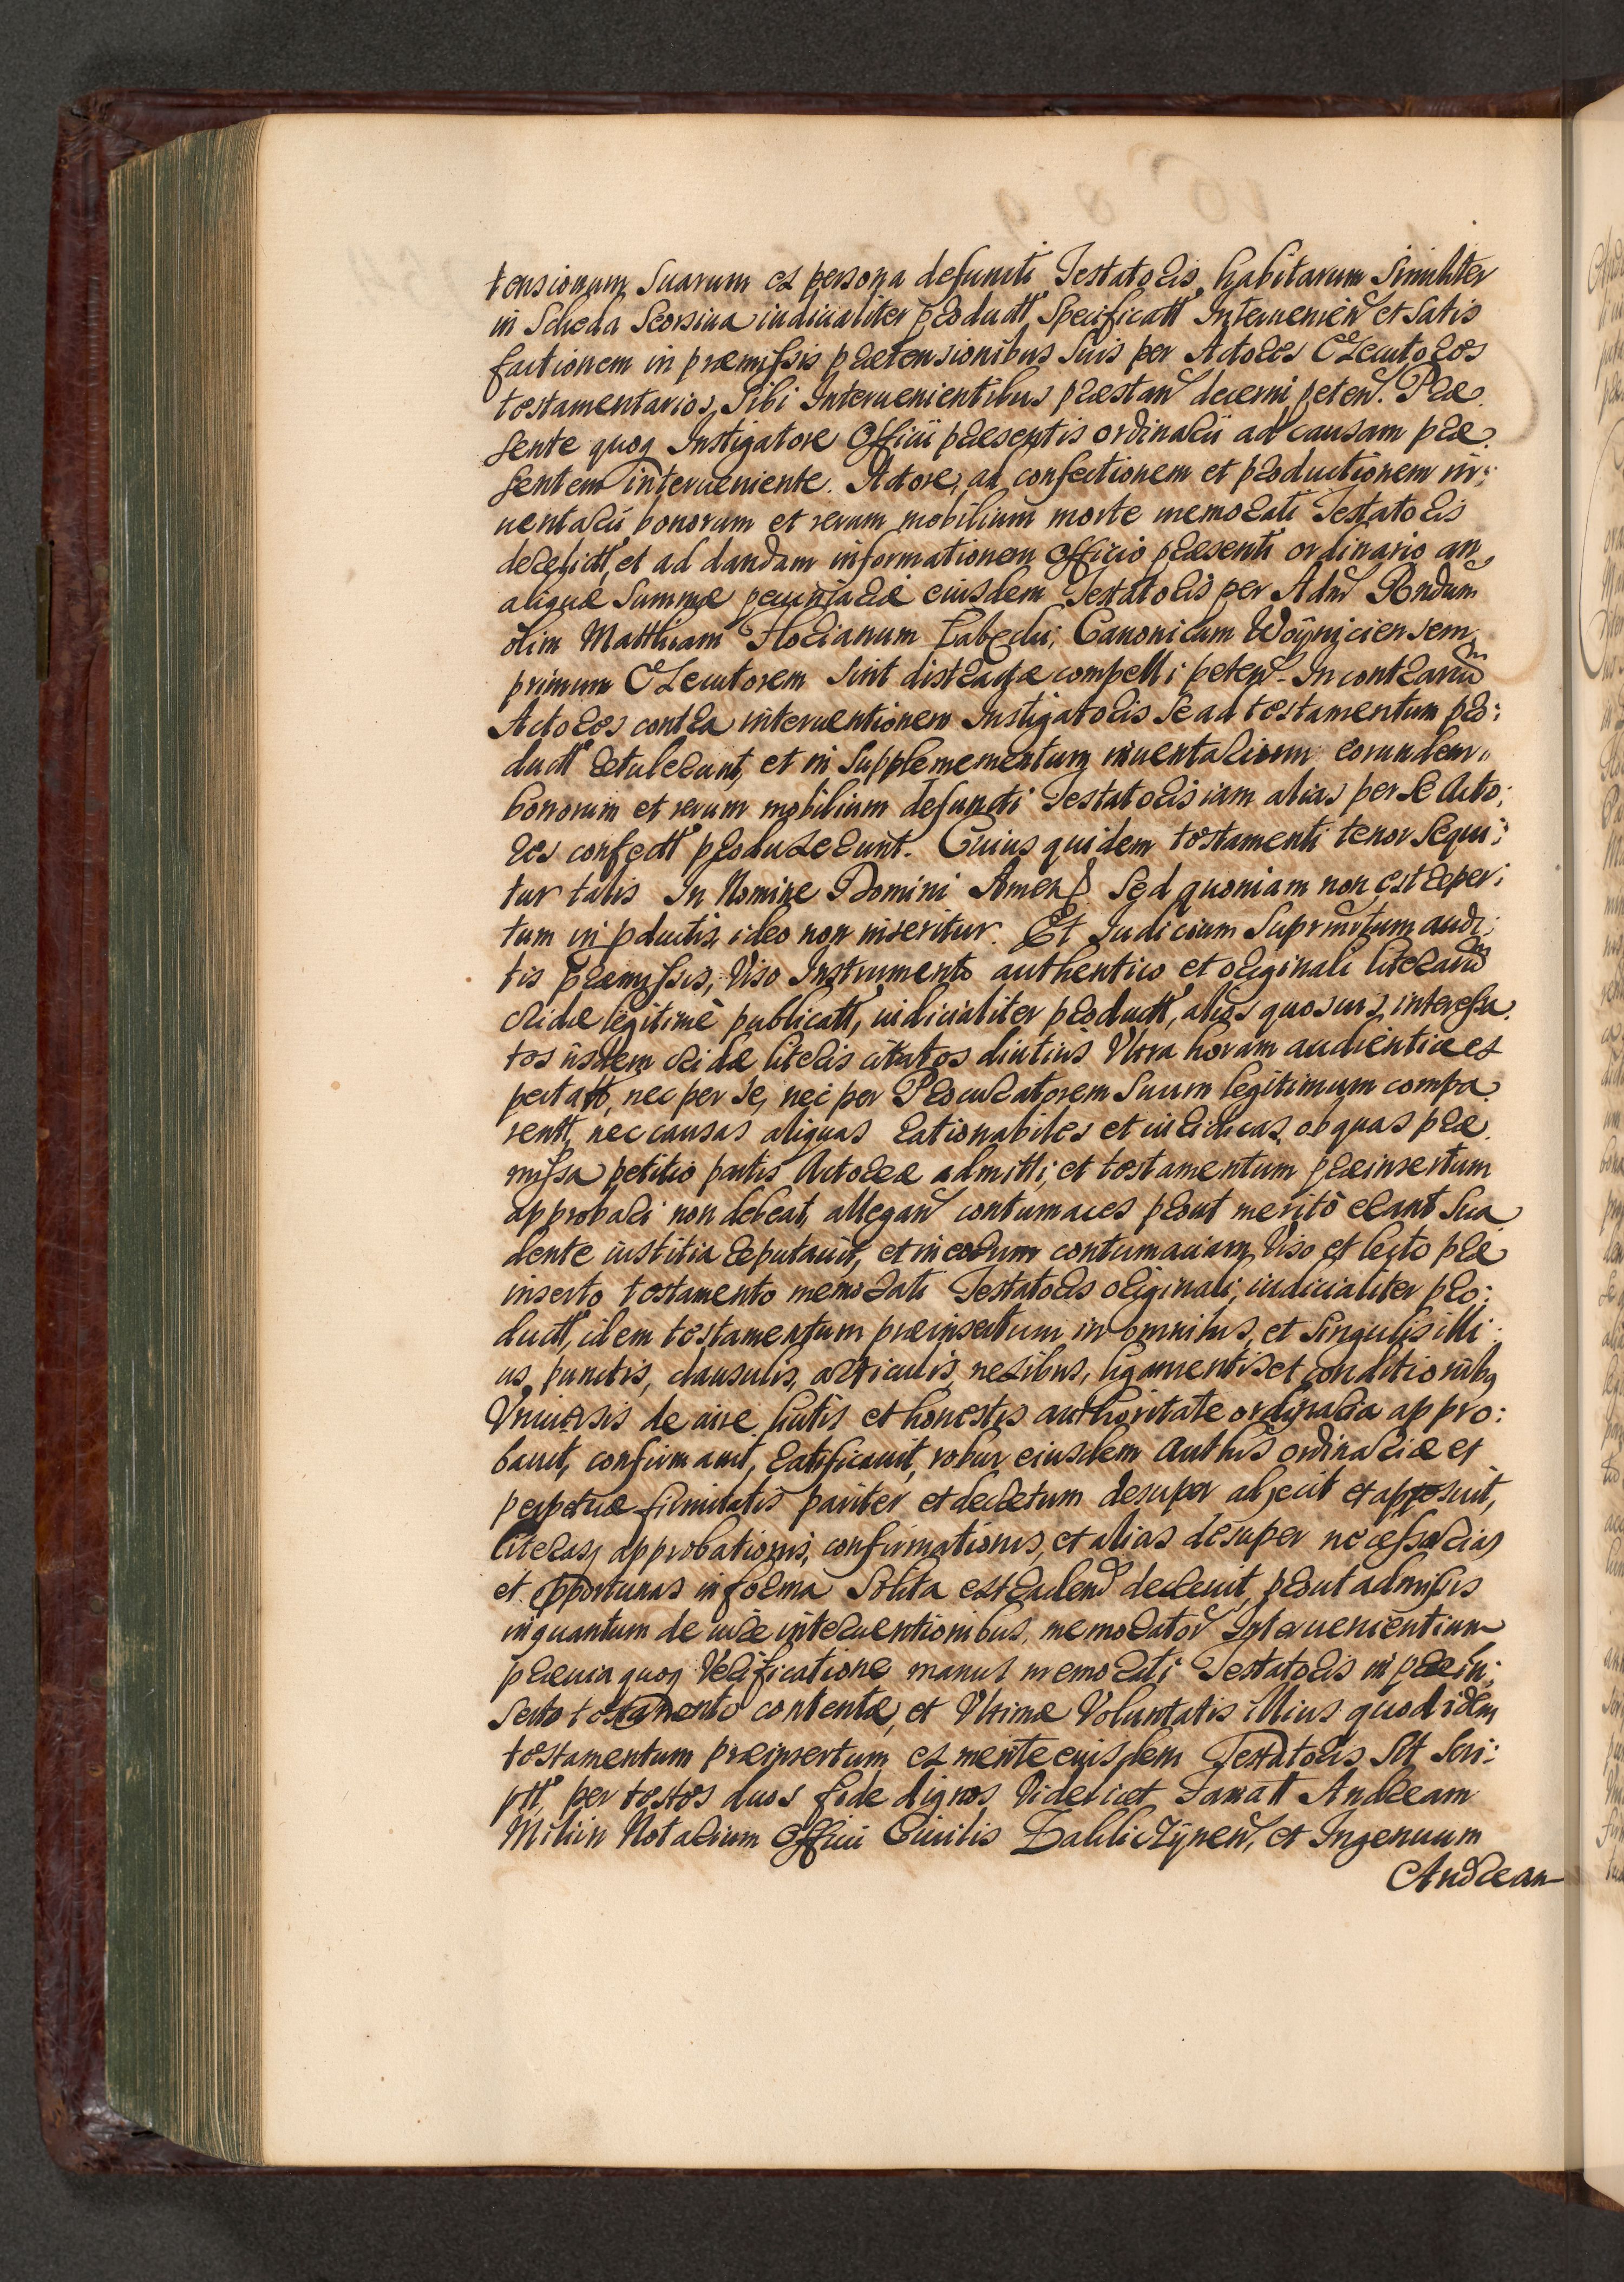 tensionum suarum ex persona defuncti Testatoris habitarum similiter
in Scheda Seorsiva iudicialiter productt specificatt Intervenien et satis
factionem in præmissis prætensionibus suis per Actores Executores
testamentarios, sibi Intervenientibus præstan decerni peten. Præ
sente quoq Instigatore Officii præsentis ordinarii ad causam præ
sentem interveniente. Actores ad confectionem et productionem in:
uentarii bonorum et rerum mobilium morte memorati Testatoris
derelictt, et ad dandam informationem Officio præsenti ordinario an
aliquæ summæ pecuniariæ eiusdem Testatoris per Adm Rndum
olim Matthiam Florianum Canonicum Woyniciensem
primum Executorem sint distractæ compelli peten. In contrariu
Actores contra interventionem Instigatoris se ad testamentum pro:
ductt retulerunt, et in supplemementum inuentariorum eorundem
bonorum et rerum mobilium defuncti Testatoris iam alias per se Acto:
res confectt produxerunt. Cuius quidem testamenti tenor sequi:
tur talis In Nomine Domini Amen Sed quoniam non est reper:
tum in pductis, ideo non inseritur. Et Iudicium audi:
tis præmissis, viso Instrumento authentico et originali literaru
cridæ legitimè publicatt, iudicialiter productt, alios quosvis interessa
tos iisdem cridæ literis citatos diutius vltra horam audientiæ ex
pectatt, nec per se, nec per Procuratorem suum legitimum compa
rentt, nec causas aliquas rationabiles et iuridicas, ob quas præ
missa petitio partis Actoreæ admitti, et testamentum præinsertum
approbari non debeat, allegan contumaces prout meritò erant sua
dente iustitia reputauit, et in eorum contumaciam, viso et lecto præ
inserto testamento memorati Testatoris originali, iudicialiter pro:
ductt, idem testamentum præinsertum in omnibus, et singulis illi:
us, punctis, clausulis, articulis, nexibus, ligamentis et conditionibq
Vniuersis de iure licitis et honestis authoritate ordinaria appro:
bauit, confirmauit, ratificauit, robur eiusdem Authtis ordinariæ et
perpetuæ firmitatis pariter et decretum desuper adjecit et apposuit,
literasq approbationis, confirmationis, et alias desuper necessarias
et opportunas in forma solita extraden decreuit, prout admissis
inquantum de iure interuentionibus, memorator Interuenientium
præuia quoq verificatione manus memorati Testatoris in præin:
serto testamento contentæ, et vltimæ voluntatis illius quod idem
testamentum præinsertum ex mente eiusdem Testatoris sit scri:
ptt, per testes duos fide dignos videlicet Famatt Andream
Milicin Notarium Officii Ciuilis Zakliczynen, et Ingenuum
Andream